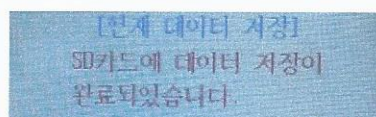 [현재 데이터 저장]
SD카드에 데이터 저장이
완료되었습니다.